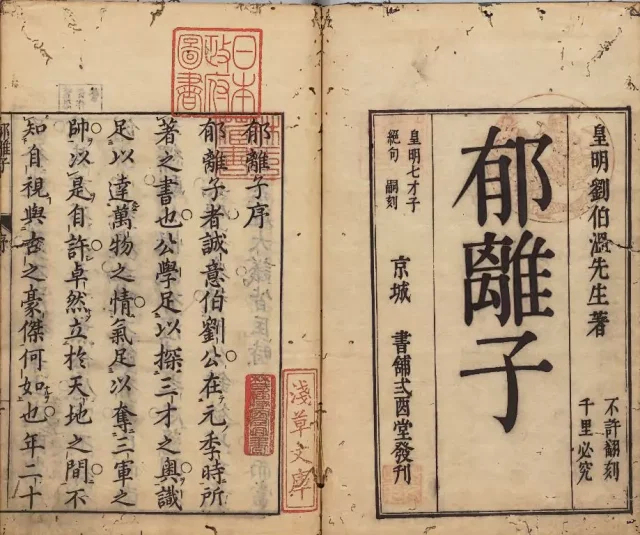 皇明劉伯溫先生著
不許翻刻
千里必究
郁離子
皇明七才子
絕句 嗣刻
京城 書舖弍酉堂發刊
日本
政府
圖書
淺草文庫
郁離子序
郁離子者誠意伯劉公在元季時所
著之書也公學足以探三才之奧識
足以達萬物之情氣足以奪三軍之
帥以是自許卓然立於天地之間不
知自視與古之豪傑何如也年二十
郁離子